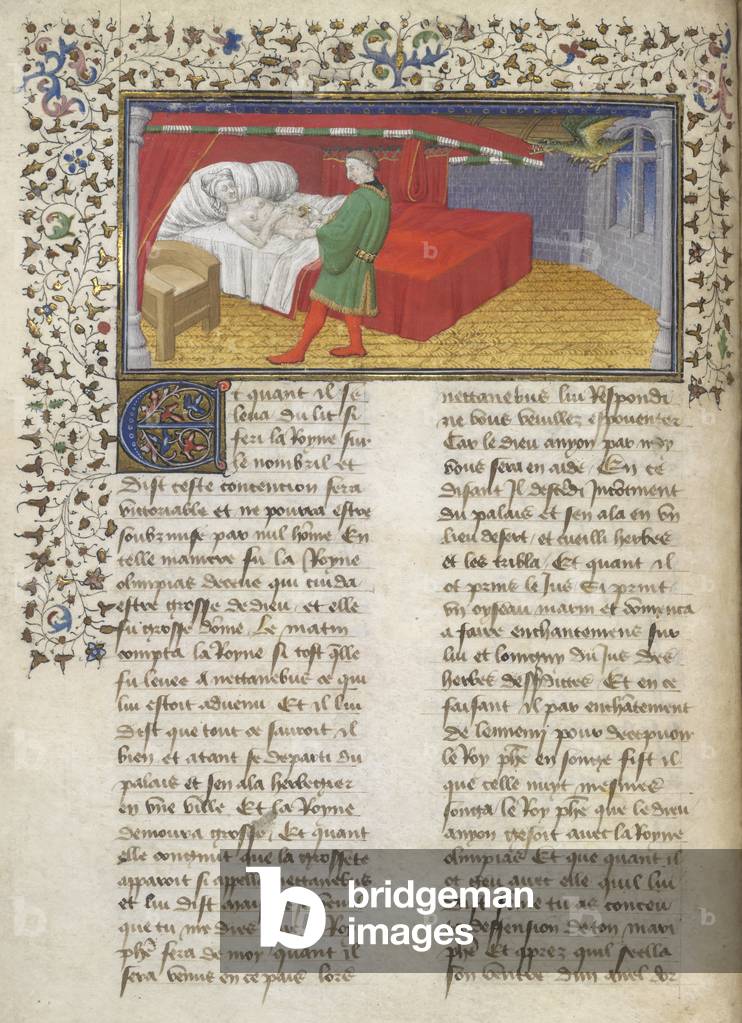 Et quant il se
leva du lit si
feri la Royne sur
le nombril et
dist ceste conception sera
victoriable et ne pourra estre
soubzmise par nul hõme En
telle maniere fu la Royne
olimpias deceue qui cuida
estre grosse de dieu et elle
fu grosse dõme Le matin
compta la Royne si tost q̃lle
fu levee a nettanebus ce qui
lui estoit advenu Et il lui
dist que tout ce savoit il
bien et atant se departi du
palais et sen ala herbegier
en vne ville Et la Royne
demoura grosse Et quant
elle congnut que la grossesse
apparoit si appella nettanebus
et lui dist
que tu me dies
phẽ fera de moy quant il
sera venus en ce pais lors
nettanebus lui Respondi
ne vous veuillez espouenter
Car le dieu amon par moy
vous sera en aide En ce
disant Il descẽdi Incõtinent
du palais et sen ala en vn
lieu desert et cueilli herbes
et les tribla Et quant il
ot prins le Jus Si print
vn oyseau marin et cõmenca
a faire enchantemens sur
lui et loingny du Jus des
herbes dessusdittes Et en ce
faisant il par enchãtement
de lennemi pour decepuoir
le Roy phẽ en songe fist il
que celle nuyt mesmes
songa le Roy phẽ que le dieu
amon gesoit avec la Royne
olimpias Et que quant il
ot geu avec elle quil lui
tu as conceu
deffension de ton mari
phẽ Et aprez quil seella
son ventre dun anel dor
bridgeman
images